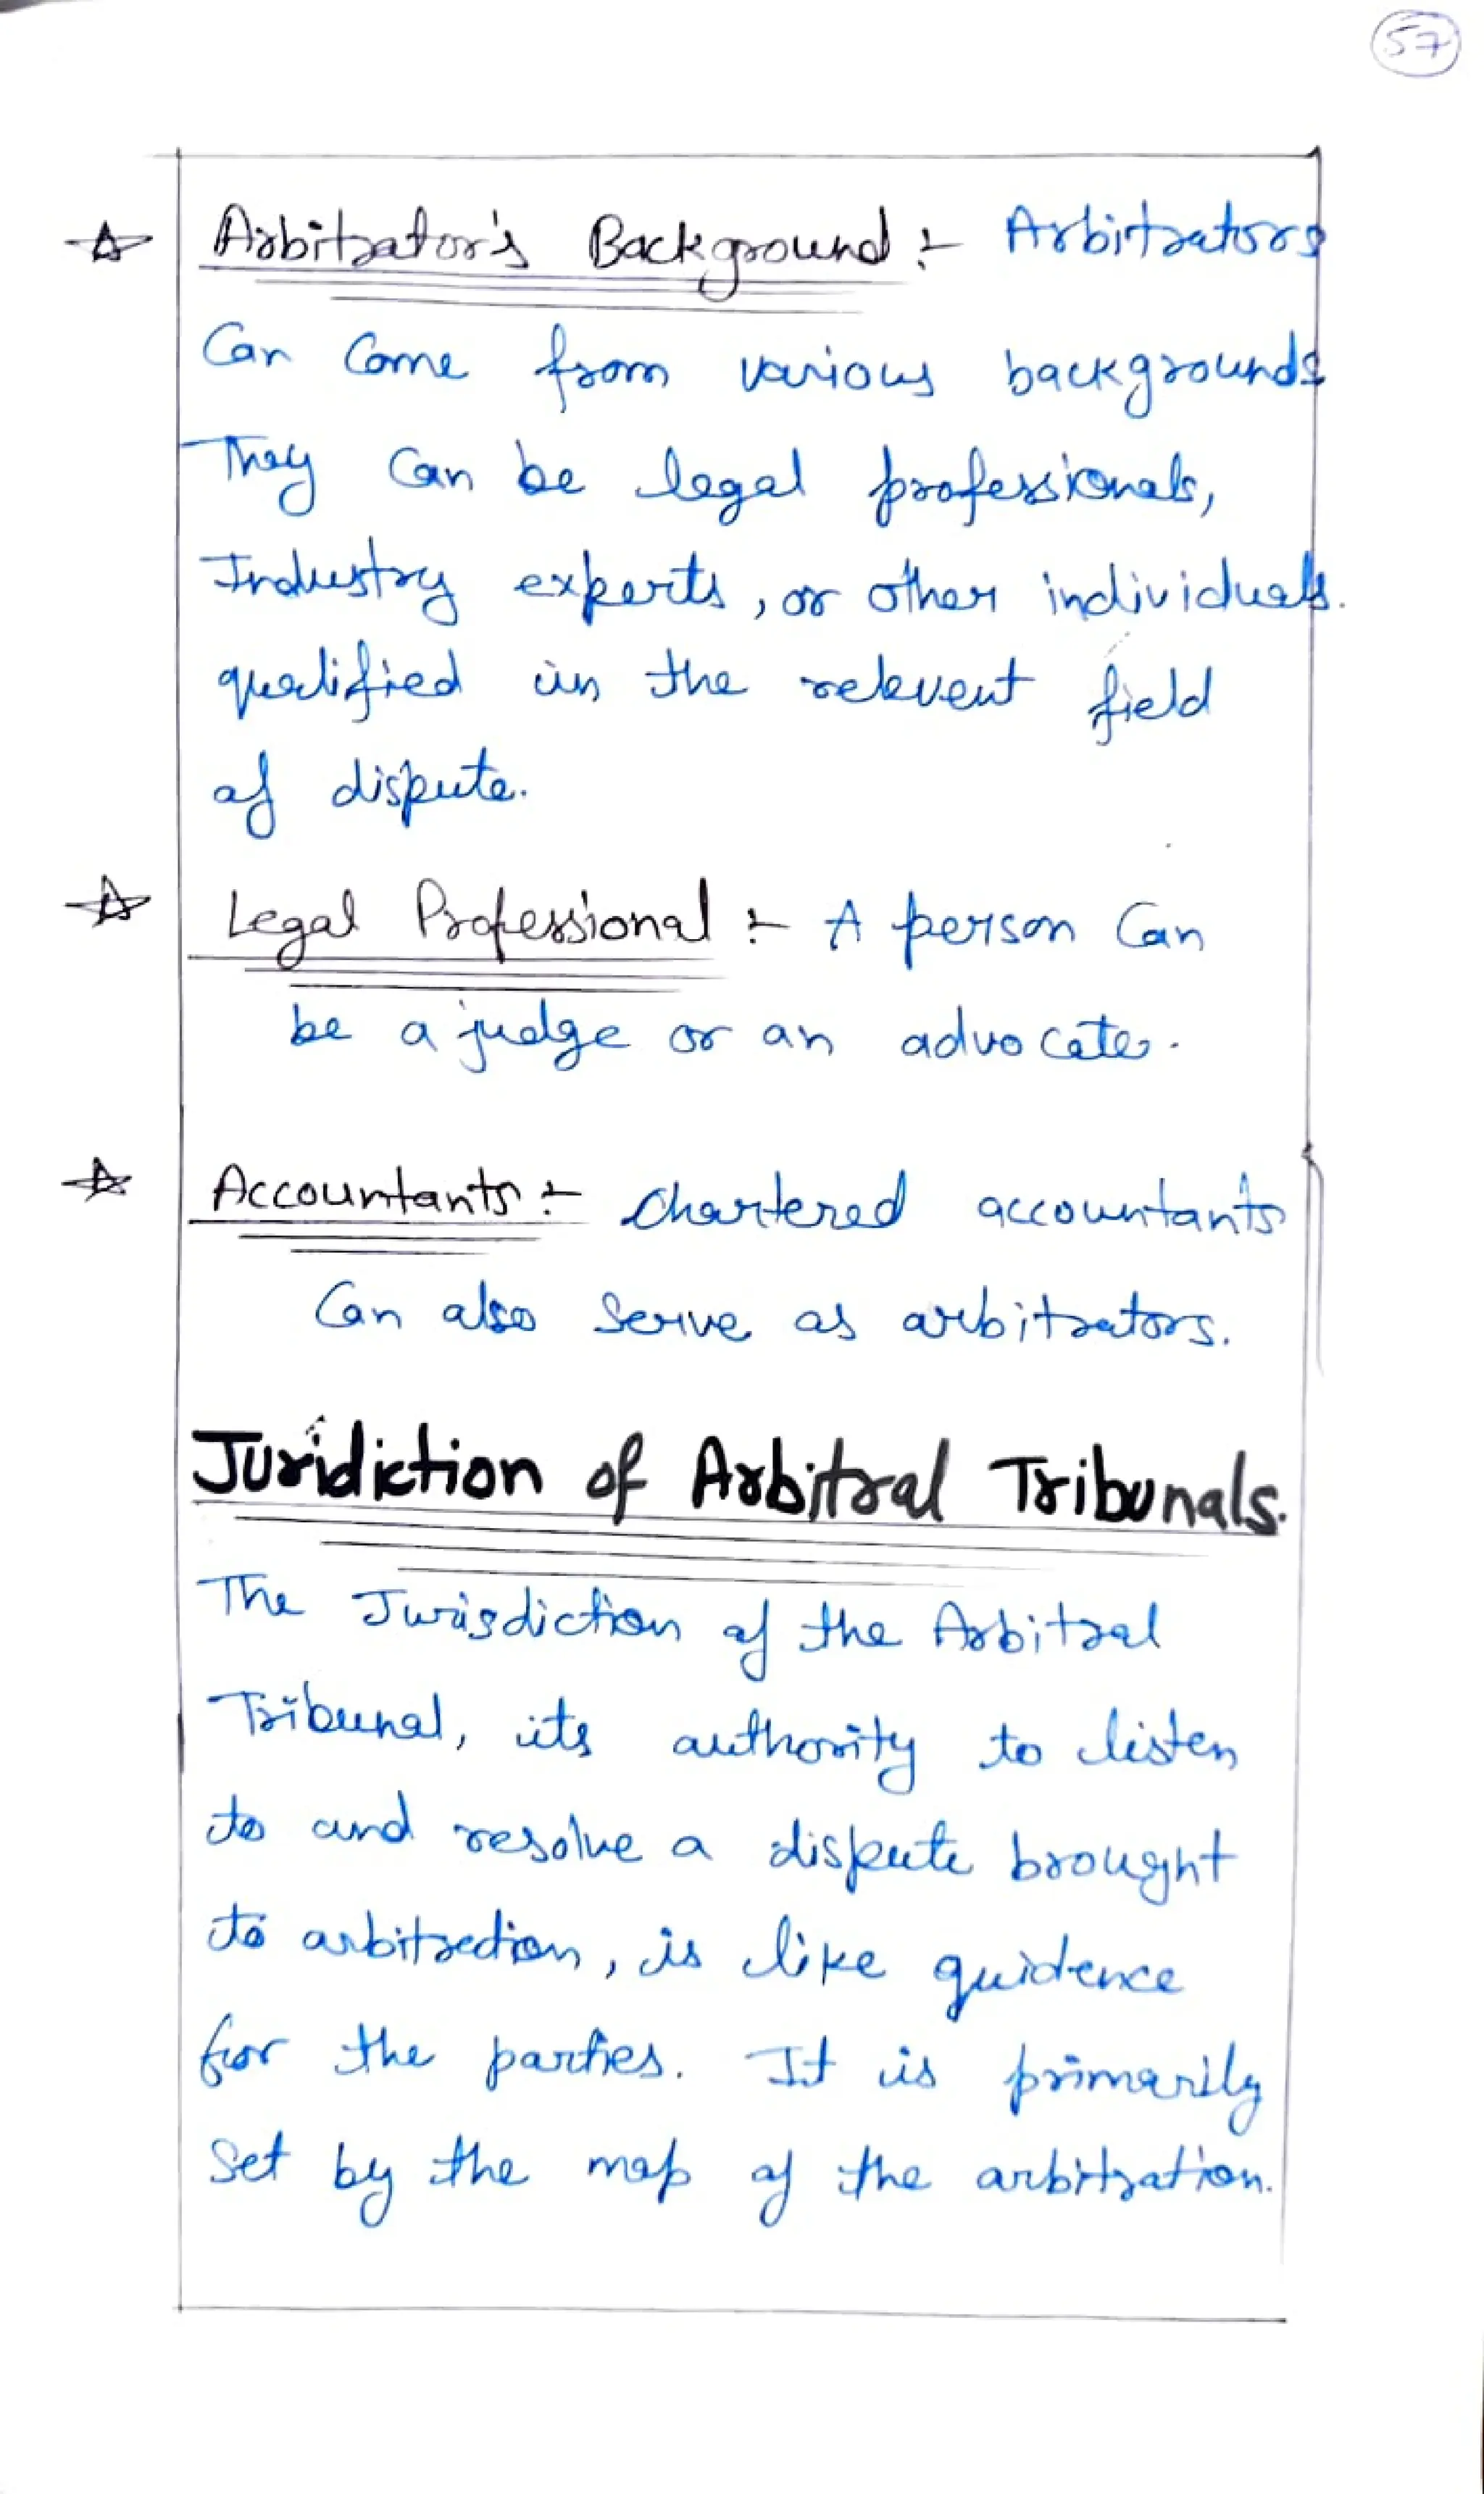 57
☆ Arbitrator's Background :- Arbitrators
Can Come from various backgrounds
They Can be legal professionals,
Industry experts, or other individuals.
qualified in the relevent field
of dispute.
☆ Legal Professional :- A person Can
be a judge or an advocate.
☆ Accountants :- Chartered accountants
Can also Serve as arbitrators.
Juridiction of Arbitral Tribunals.
The Jurisdiction of the Arbitral
Tribunal, its authority to listen
to and resolve a dispute brought
to arbitration, is like guidence
for the parties. It is primarily
Set by the map of the arbitration.